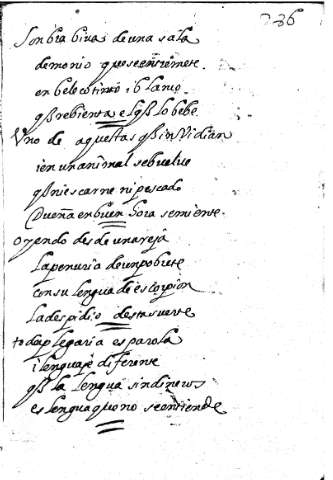 236
Sonbra biva de una saia
demonio que se entremete
en bele co tinto i blanco
qe rebienta el qe lo bebe
Vno de aquestas qe invidian
i en un animal se buelve
qe ni es carne ni pescado
Dueña en buen hora se miente
oyendo desde una reja
la penuria de un pobrete
con su lengua de escorpion
la despidio desta suerte
toda plegaria es parola
i lenguaje diferente
qe la lengua sin dineros
es lengua que no se entiende